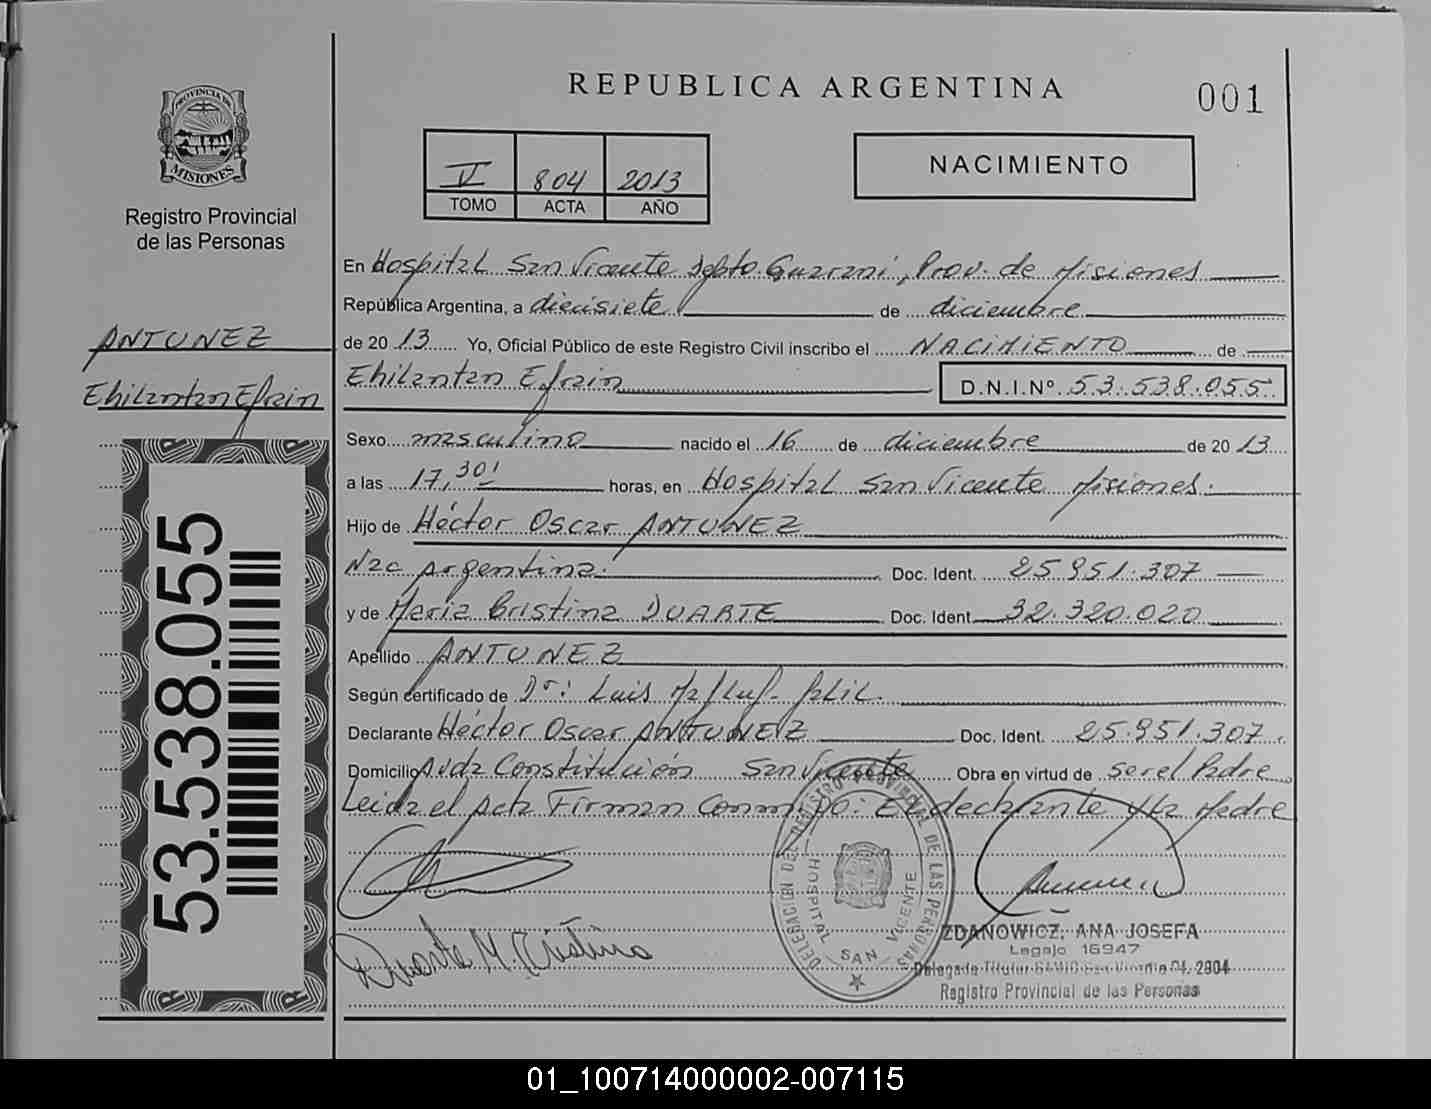 REPUBLICA ARGENTINA
001
PROVINCIA DE
MISIONES
Registro Provincial
de las Personas
V 804 2013
TOMO ACTA AÑO
NACIMIENTO
En Hospital San Vicente Depto. Guaraní, Prov. de Misiones
República Argentina, a diecisiete de diciembre
de 2013 Yo, Oficial Público de este Registro Civil inscribo el NACIMIENTO de
Ehilantan Efrain D.N.I.Nº 53.538.055
ANTUNEZ
Ehilantan Efrain
Sexo masculino nacido el 16 de diciembre de 2013
a las 17,30' horas, en Hospital San Vicente Misiones.
Hijo de Héctor Oscar ANTUNEZ
Nac Argentina. Doc. Ident. 25.951.307
y de Maria Cristina DUARTE Doc. Ident 32.320.020
Apellido ANTUNEZ
Según certificado de Dr: Luis
Declarante Héctor Oscar ANTUNEZ Doc. Ident. 25.951.307.
Domicilio Avda Constitución San Vicente Obra en virtud de ser el Padre
Leida el Acta Firman Conmigo: El declarante y la Madre
53.538.055
Duarte M. Cristina
DELEGACION DEL REGISTRO PROVINCIAL DE LAS PERSONAS
HOSPITAL SAN VICENTE
ZDANOWICZ, ANA JOSEFA
Legajo 16947
Delegada Titular SAMIC San Vicente 04. 2804
Registro Provincial de las Personas
01_100714000002-007115